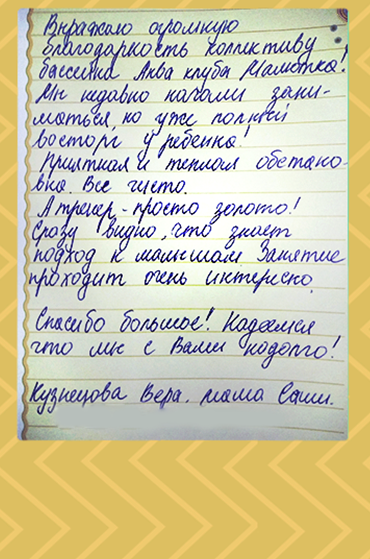 Выражаю огромную
благодарность коллективу
бассейна Аква клуба Мамонтёнка!
Мы недавно начали зани-
маться, но уже полный
восторг у ребенка!
Приятная и теплая обстано-
вка. Все чисто.
А тренер - просто золото!
Сразу видно, что знает
подход к малышам Занятие
проходит очень интересно.
Спасибо большое! Надеемся
что мы с Вами надолго!
Кузнецова Вера. мама Саши.